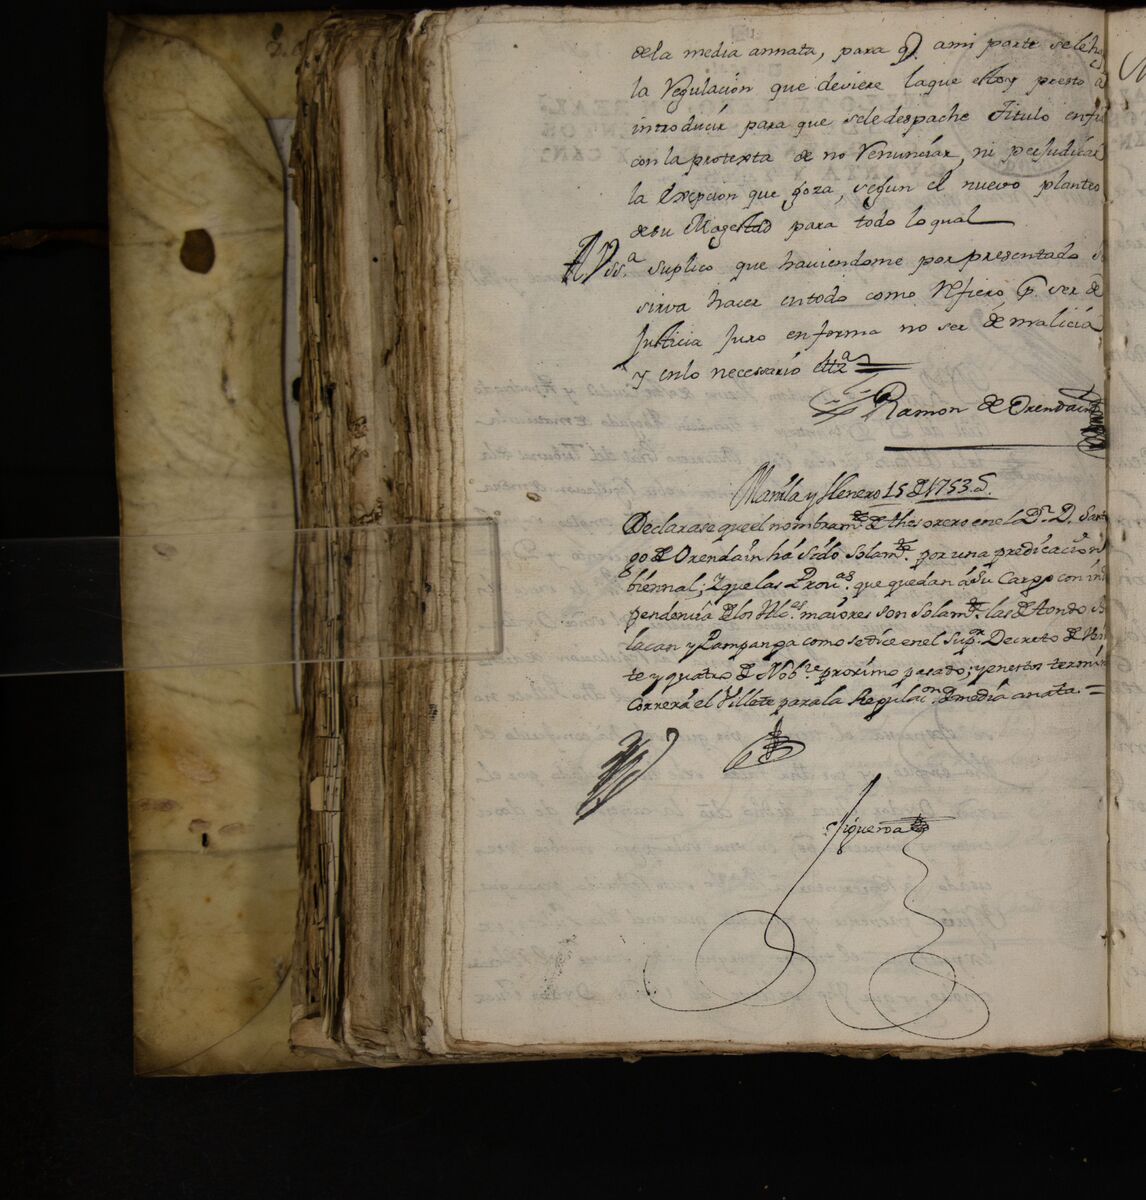 dela media annata, para q̃ ami parte sele ha
la Regulacion que deviere laque estoy presto a
introducir para que sele despache Titulo enfo
con la protexta de no Renunciar, ni perjudicar
la Exepcion que goza, segun el nuevo planteo
de su Magestad para todo lo qual
A Vss.ª suplico que haviendome por presentado s
sirva hacer entodo como refiero q̃. ser de
Justicia Juro enforma no ser de malicia
y enlo necessario ettz.ª
Ramon de Orendain
Manila y Henero 15 de 1753.
Declarase que el nombram.to de thesorero en el D.r D. Santi
go de Orendain há sido solam.te por una predicacion
biennal; Y que las Prov.as que quedan á su Cargo con in
pendencia de los Alc.es maiores son solam.te las de tondo
lacan y Pampanga como se dice en el sup.r Decreto de Vei
te y quatro de Nob.re proximo pasado; y en estos termin
Correrá el Villete para la Regulac.on de media anata.
Sigueroa